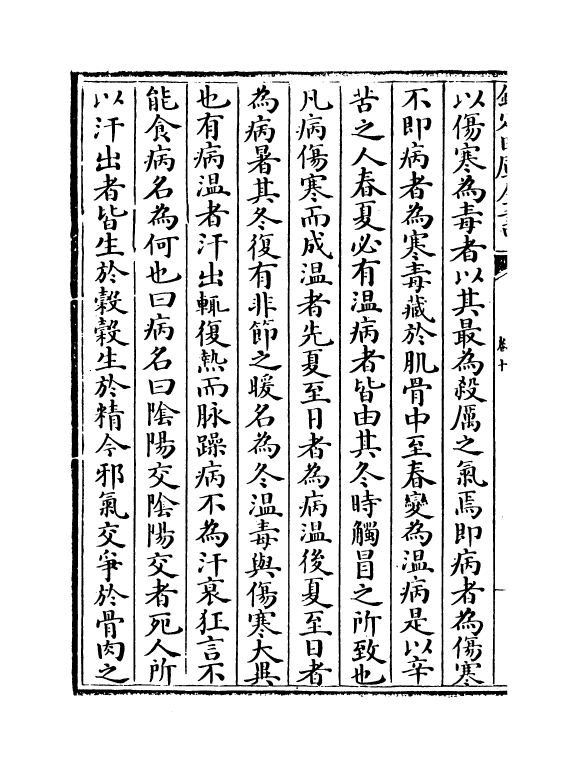 卷十
以傷寒為毒者以其最為殺厲之氣焉即病者為傷寒
不即病者為寒毒藏於肌骨中至春變為温病是以辛
苦之人春夏必有温病者皆由其冬時觸冒之所致也
凡病傷寒而成温者先夏至日者為病温後夏至日者
為病暑其冬復有非節之暖名為冬温毒與傷寒大異
也有病温者汗出輒復熱而脉躁病不為汗衰狂言不
能食病名為何也曰病名曰陰陽交陰陽交者死人所
以汗出者皆生於榖榖生於精今邪氣交爭於骨肉之